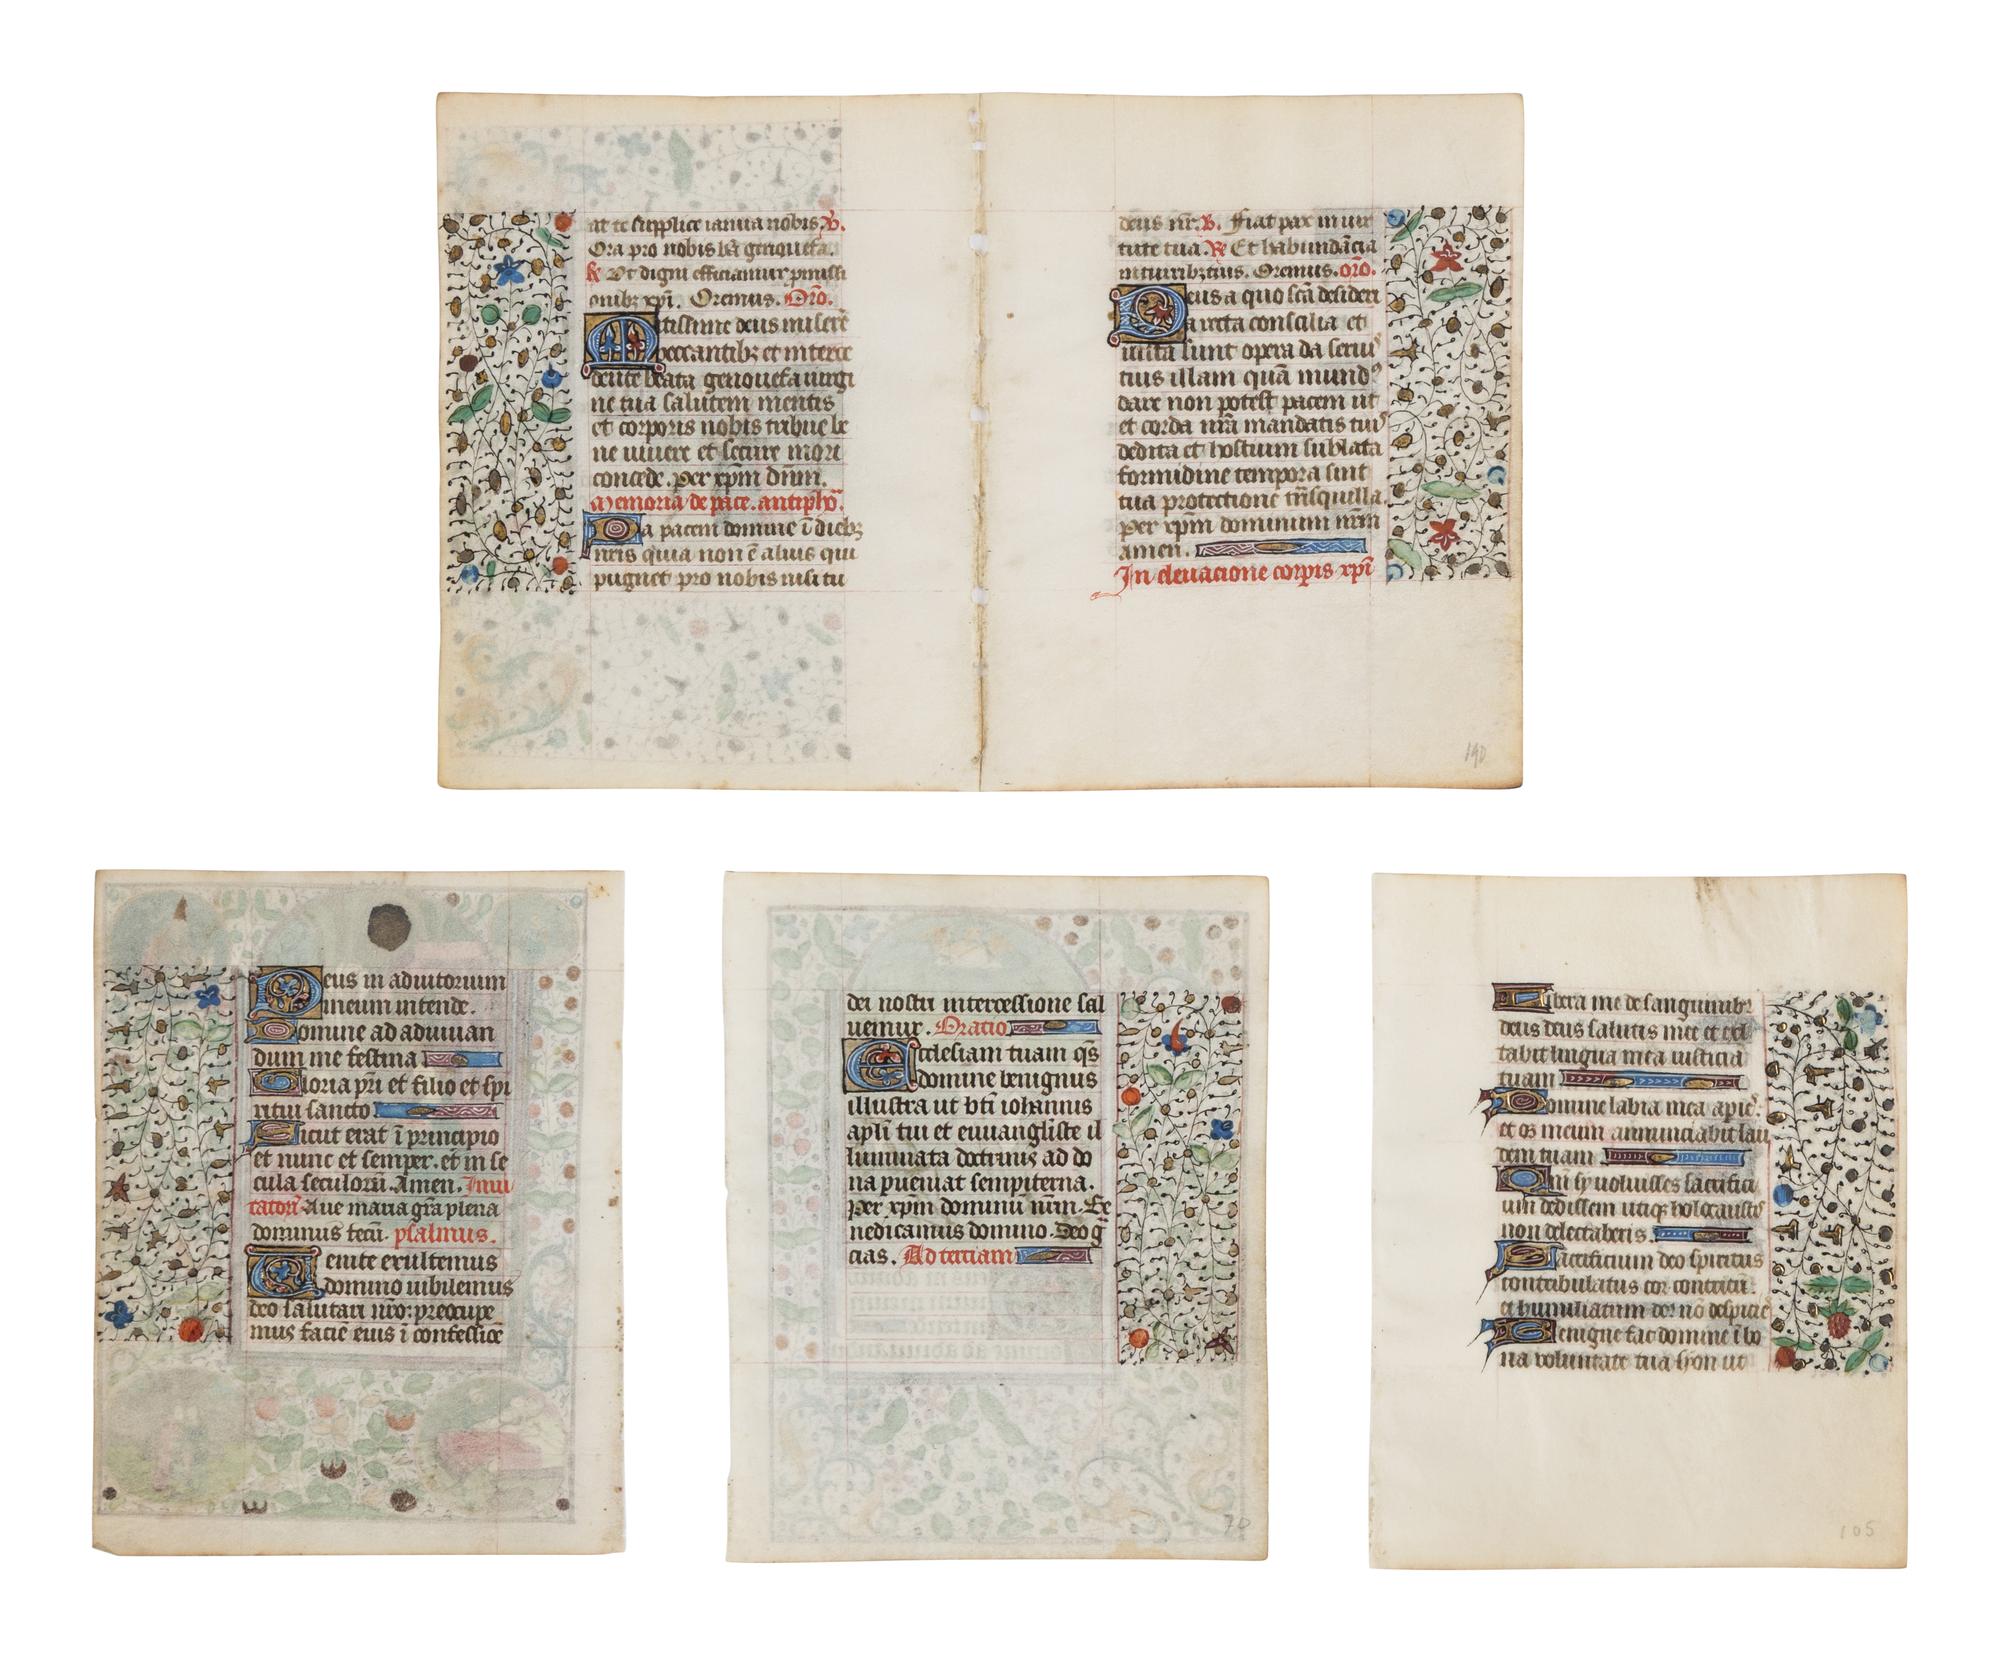 at te supplice ianua nobis. V.
Ora pro nobis bā genouefa.
R Vt digni efficiamur pmissi
onibꝫ xpi. Oremus. Orō.
Mitissime deus miserē
peccantibꝫ et interce
dente beata genouefa uirgi
ne tua salutem mentis
et corporis nobis tribue be
ne uiuere et secure mori
concede. Per xpm dnm.
Memoria de pace. antiphō.
Da pacem domine ī diebꝫ
nris quia non ē alius qui
pugnet pro nobis nisi tu
deus nr. V. Fiat pax in uir
tute tua. R Et habundācia
in turribꝫ tuis. Oremus. orō.
Deus a quo scā desideri
a recta consilia et
iusta sunt opera da seruis
tuis illam quā mundꝰ
dare non potest pacem ut
et corda nrā mandatis tuis
dedita et hostium sublata
formidine tempora sint
tua protectione trāsquilla.
Per xpm dominum nrm
amen.
In eleuacione corpis xpi
190
Deus in adiutorium
meum intende.
Domine ad adiuuan
dum me festina
Gloria pri et filio et spi
ritui sancto
Sicut erat ī principio
et nunc et semper. et in se
cula seculorū. Amen. Inui
tatorī. Aue maria grā plena
dominus tecū. psalmus.
Uenite exultemus
domino iubilemus
deo salutari nro: preocupe
mus faciē eius ī confessiōe
dei nostri intercessione sal
uemur. Oratio
Ecclesiam tuam qs
domine benignus
illustra ut bti iohannis
apli tui et euuangliste il
luminata doctrinis ad do
na pueniat sempiterna.
Per xpm dominū nrm. Be
nedicamus domino. Deo g
cias. Ad terciam
70
Libera me de sanguinibꝫ
deus deus salutis mee et exl
tabit lingua mea iusticiā
tuam
Domine labia mea apies.
et os meum annunciabit lau
dem tuam
Qm sy uoluisses sacrifici
um dedissem utiqꝫ holocaustis
non delectaberis.
Sacrificium deo spiritus
contribulatus cor contritū
et humiliatum deꝰ nō despicies
Benigne fac domine ī bo
na voluntate tua syon ut
105